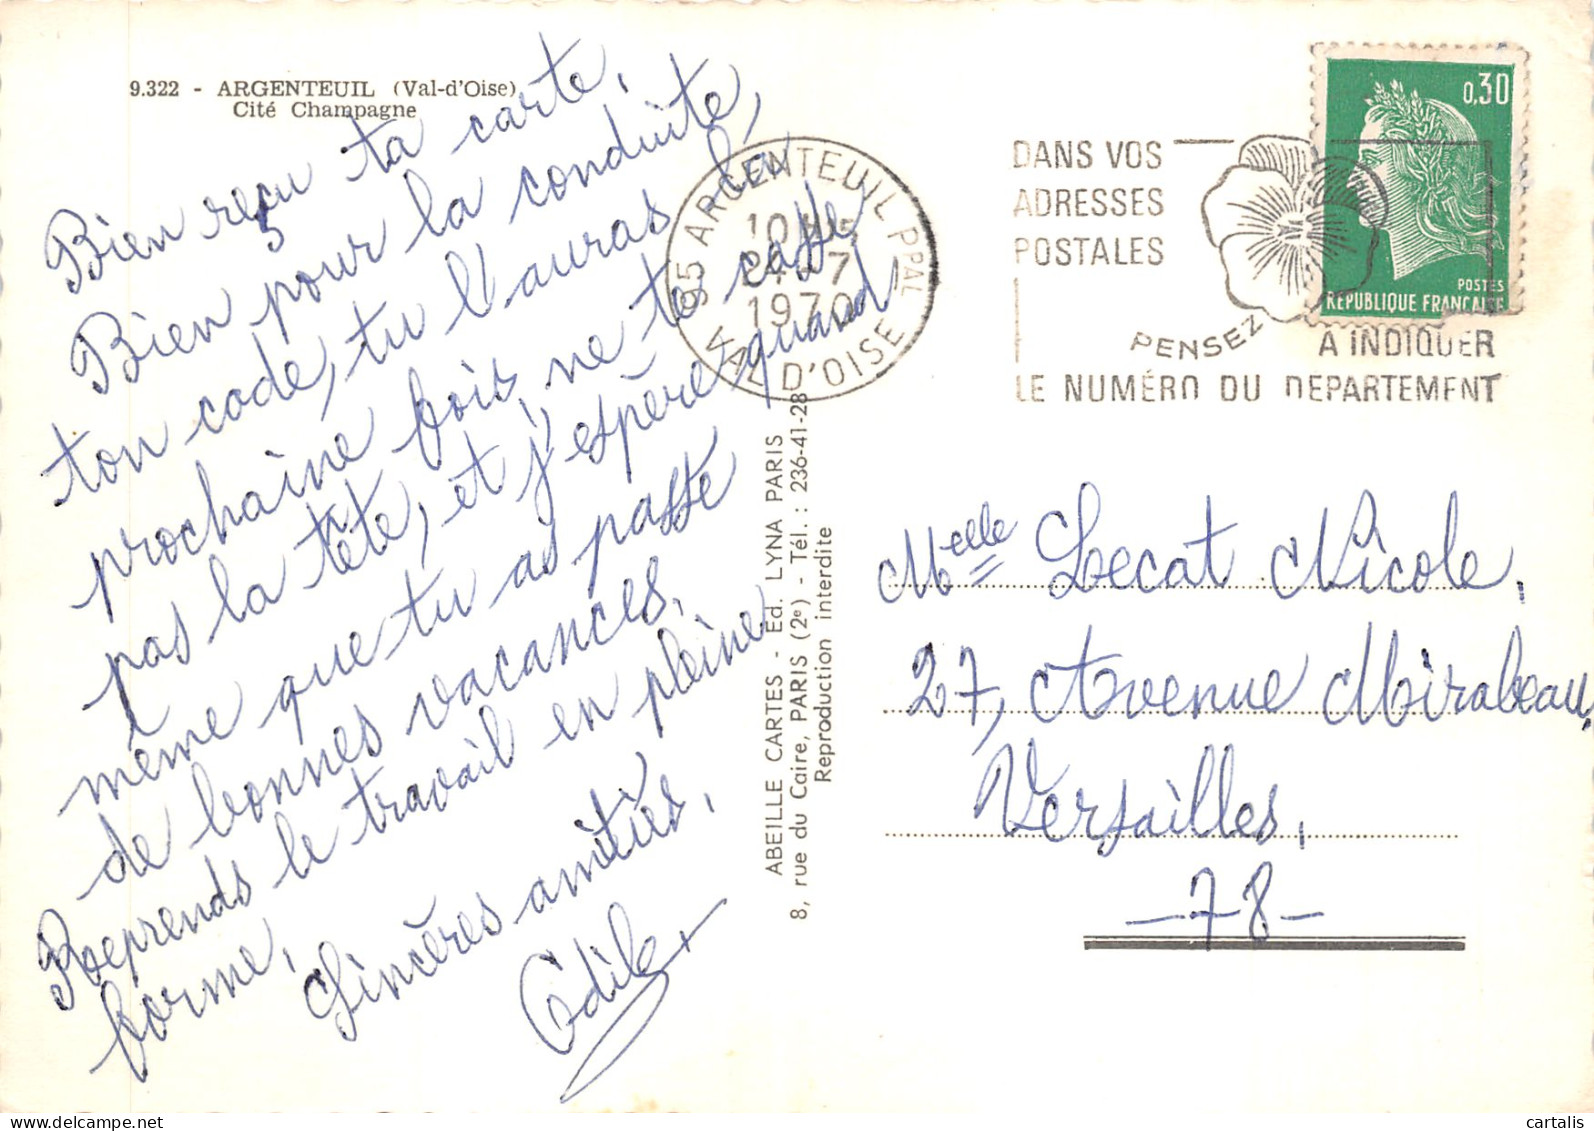 9.322 - ARGENTEUIL (Val-d'Oise)
Cité Champagne
Bien reçu ta carte,
Bien pour la conduite,
ton code, tu l'auras la
prochaine fois, ne te casse
pas la tête, et j'espère quand
même que tu as passé
de bonnes vacances.
Reprends le travail en pleine
forme,
Sincères amitiés.
Odile
ABEILLE CARTES - Ed. LYNA PARIS
8, rue du Caire, PARIS (2e) - Tél. : 236-41-28
Reproduction interdite
95 ARGENTEUIL PPAL
10H
7
1970
VAL D'OISE
DANS VOS
ADRESSES
POSTALES
PENSEZ
A INDIQUER
LE NUMÉRO DU DEPARTEMENT
0,30
POSTES
REPUBLIQUE FRANCAISE
Melle Lecat Nicole,
27, Avenue Mirabeau,
Versailles,
-78-
cartalis